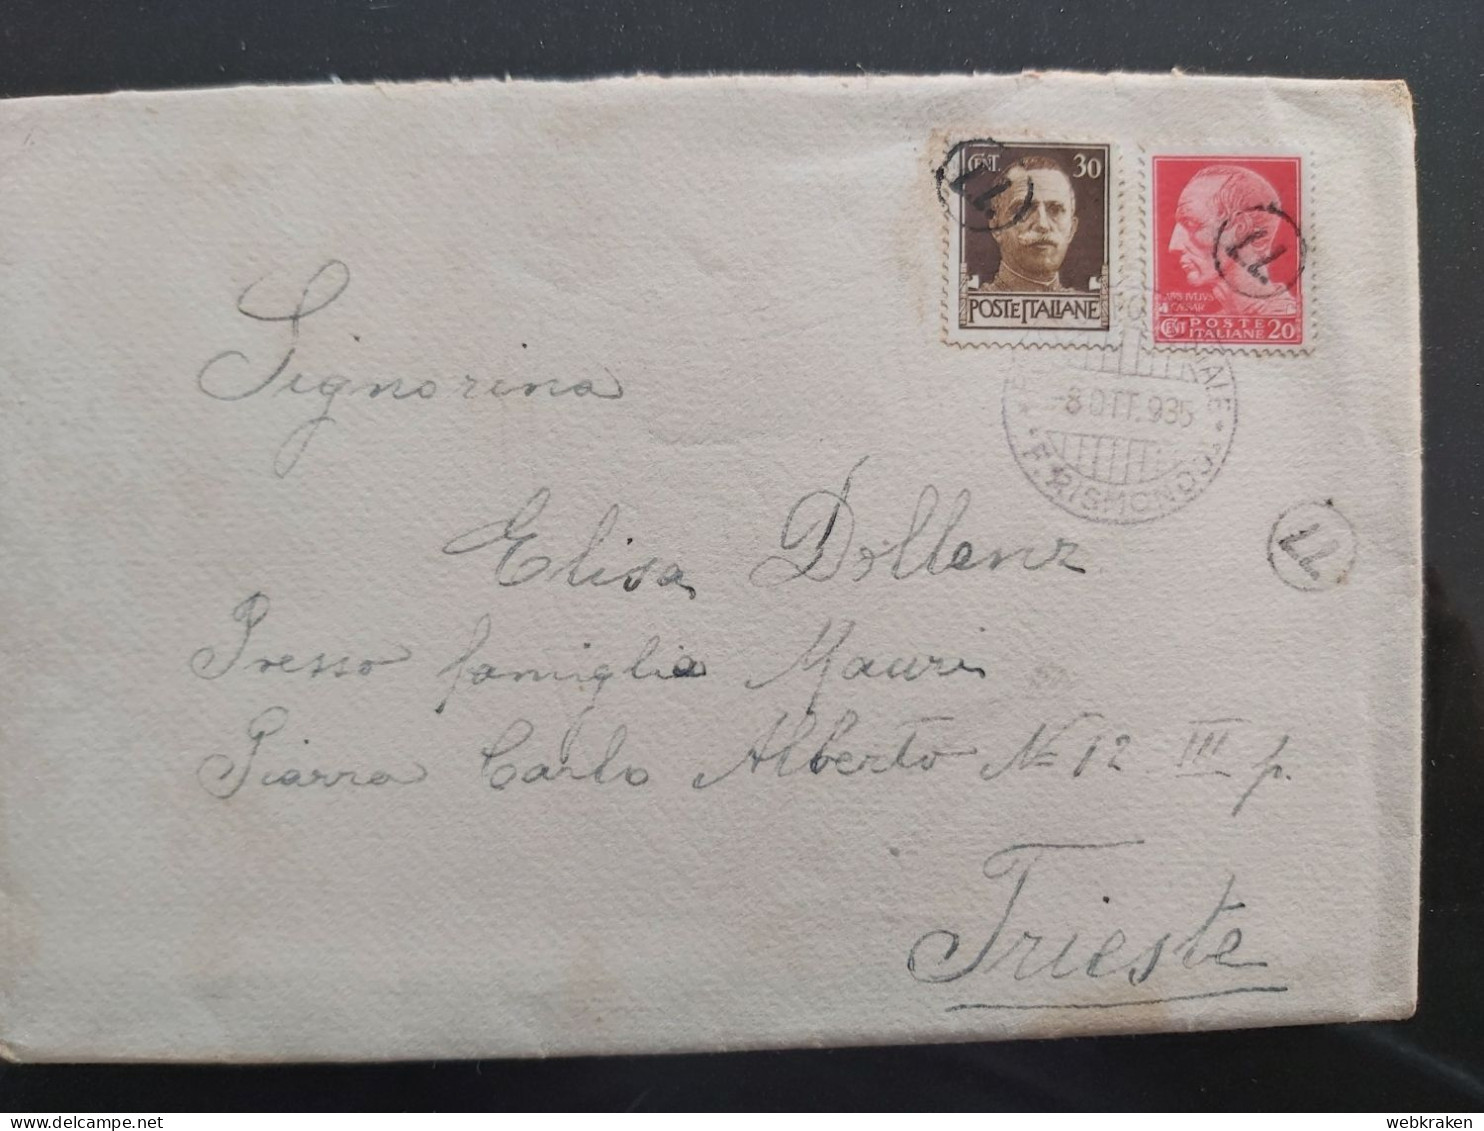 CENT. 30
POSTE ITALIANE
CAESAR
CENT POSTE ITALIANE 20
-8 OTT. 935
F. RISMONDO
Signorina
Elisa Dollenz
Presso famiglia Mauri
Piazza Carlo Alberto No 12 III p.
Trieste
webkraken